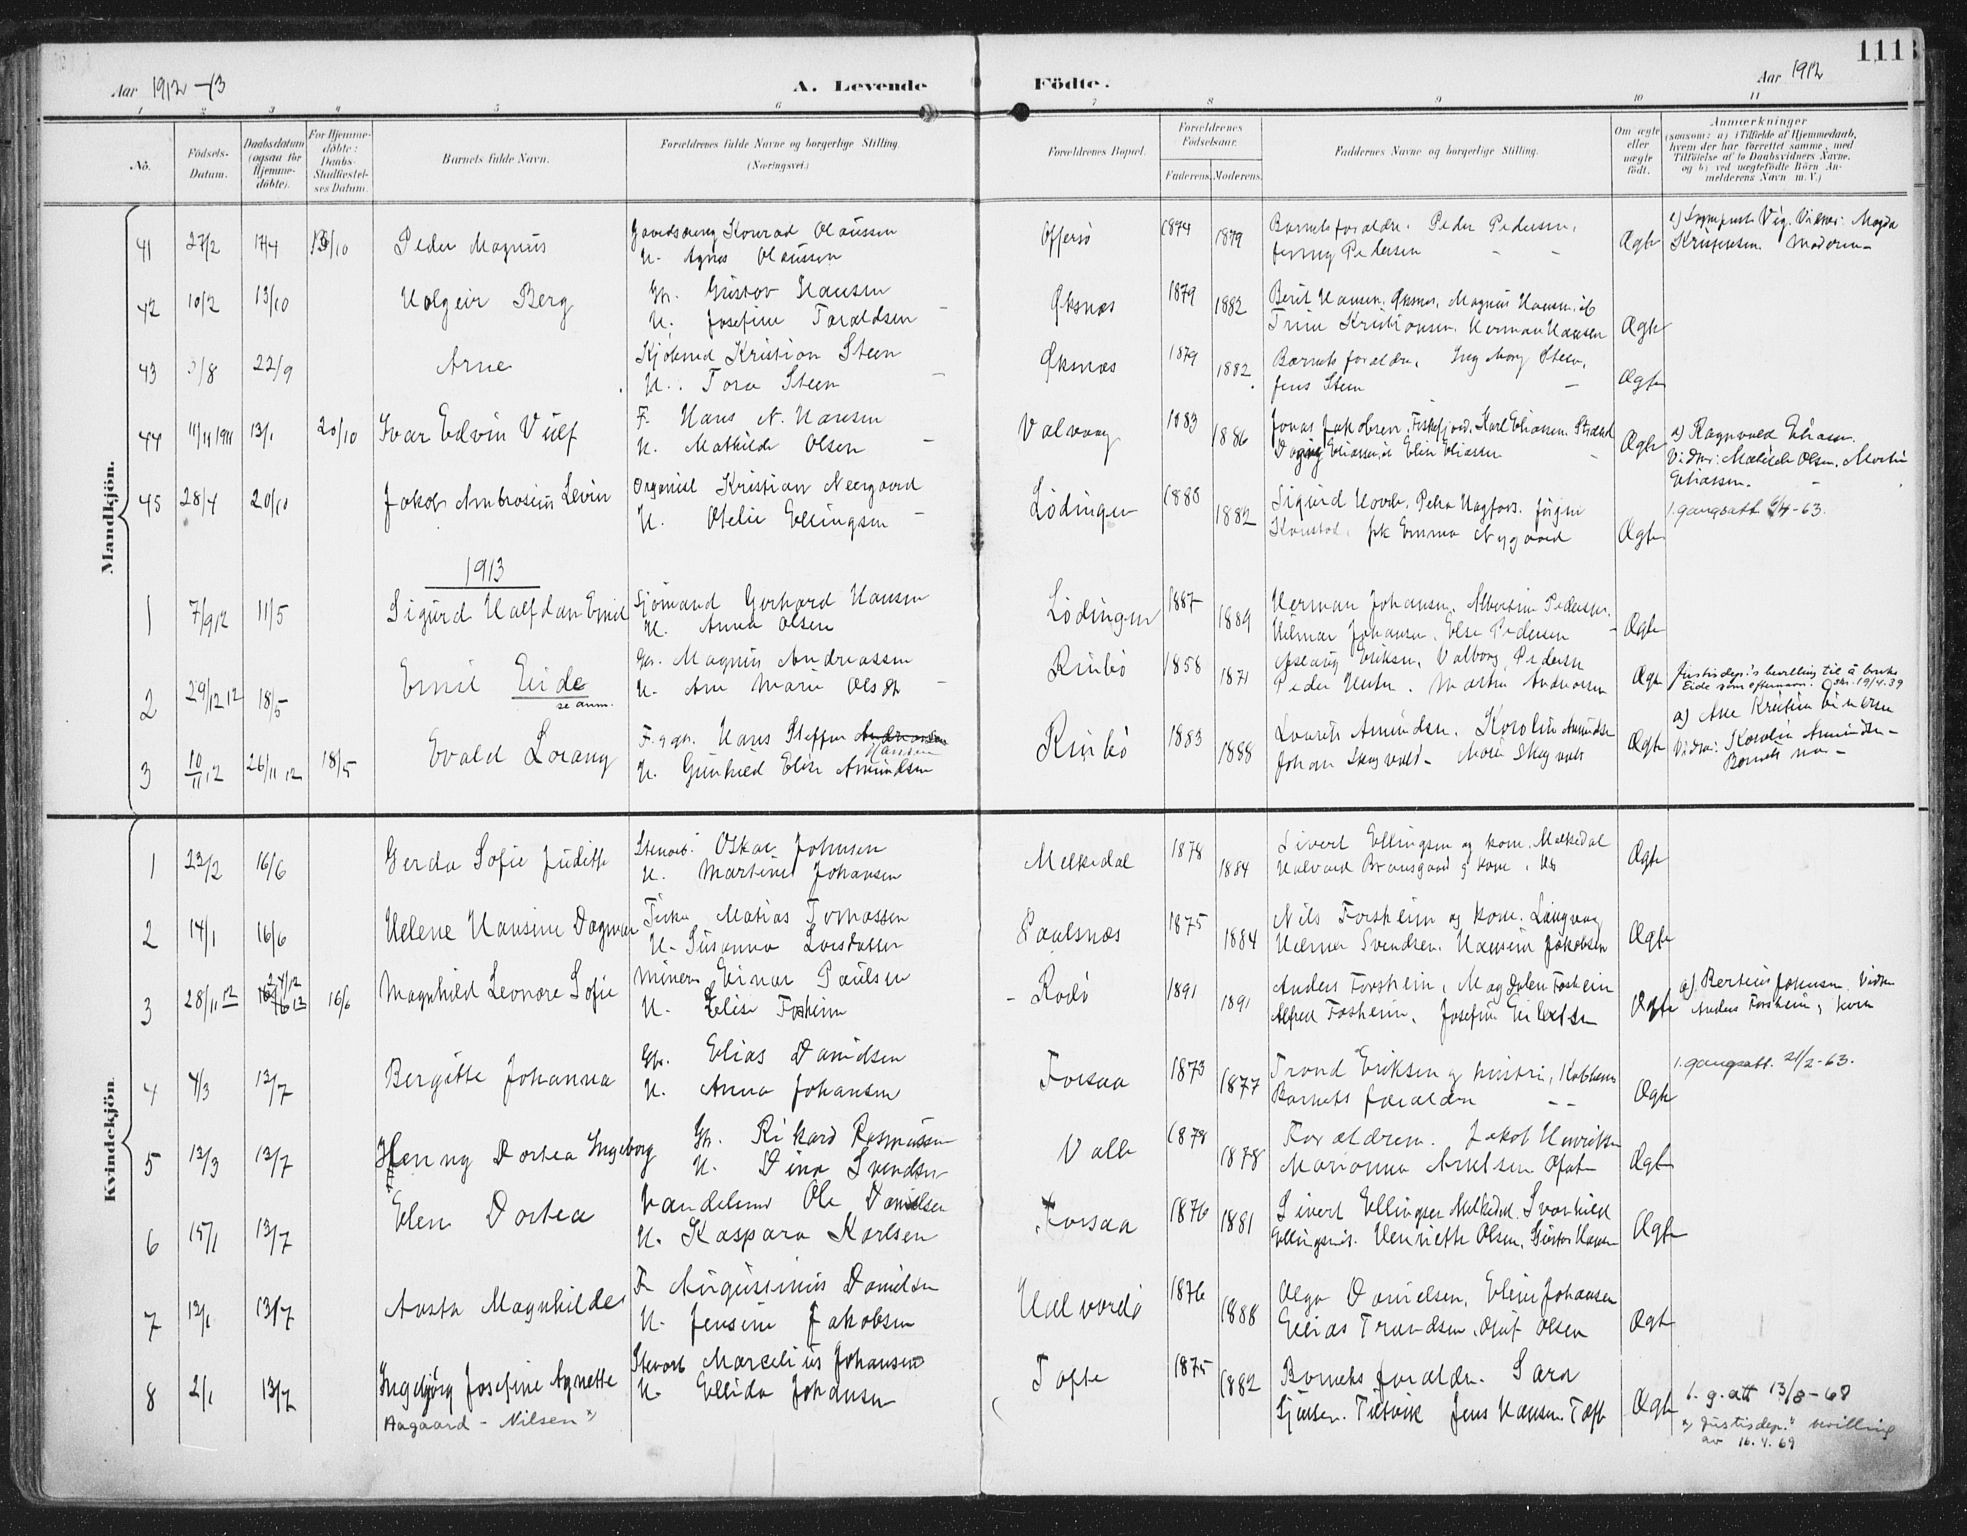 111
Aar 1912-13
A. Levende Födte.
Aar 1912
1 2 3 4 5 6 7 8 9 10 11
No.
Födsels-Datum.
Daabsdatum (ogsaa for Hjemme-döbte).
For Hjemme-döbte: Daabs-Stadfæstel-ses Datum.
Barnets fulde Navn.
Forældrenes fulde Navne og borgerlige Stilling. (Næringsvei.)
Forældrenes Bopæl.
Forældrenes Födselsaar.
Faderens. Moderens.
Faddernes Navne og borgerlige Stilling.
Om ægte eller uægte födt.
Anmærkninger
(saasom: a) i Tilfælde af Hjemmedaab, hvem der har forrettet samme, med Tilföielse af to Daabsvidners Navne, og b) ved uægtefödte Börn An-melderens Navn m. V.)
Mandkjön.
41 27/2 17/4 /10 Peder Magnus
Konrad Olaussen
H. Agnes Olaussen
Offersö 1874 1879
Barnets foraldre. Peder Pedersen,
Jenny Pedersen - -
Ægte
42 10/2 13/10 Holgeir Berg
Gbr. Gustav Hansen
H. Josefine Taraldsen
Øksnæs 1879 1882
Berit Hansen, Øksnes, Magnus Hansen, ib
Trine Kristiansen. Herman Hansen
Ægte
43 /8 22/9 Arne
Kjöbmd Kristian Steen
H. Tora Steen
Øksnæs 1879 1882
Barnets foraldre, Ingeborg Steen,
Jens Steen -
Ægte
44 11/11 1911 13/1 20/10 Ivar Edvin Vulf
F. Hans N. Hansen
H. Mathilde Olsen
Valvaag 1883 1886
Jonas Jakobsen, Fiskefjord, Karl Eliassen
Eliassen, Elise Eliassen
Ægte
a) Ragnvald Eliassen.
Vidner: Matilde Olsen,
Eliassen.
45 28/4 20/10 Jakob Ambrosius Levin
Organist Kristian Neergaard
H. Otelie Ellingsen
Lödingen 1888 1882
Sigurd Hovde, Petra Hagfors. Jörgen
frk Emma Nygaard
Ægte
1. gangsatt. 6/4-63.
1913
1 7/9 12 11/5 Sigurd Halfdan Emil
Sjömand Gerhard Hansen
H. Anna Olsen
Lödingen 1887 1889
Herman Johansen, Albertine Pedersen.
Hilmar Johansen, Else Pedersen
Ægte
2 29/12 12 18/5 Emil Eide
se anm.
Gbr. Magnus Andreassen
H. Ane Marie Olsen
Rinbö 1858 1871
Aslaug Eriksen, Valborg Pedersen
Peder
Ægte
Justisdep.'s bevilling til å bruke
Eide som efternavn. 19/4.39
3 10/11 12 26/11 12 18/5 Evald Lorang
Hans Steffen Andreassen
Hansen
H. Gunhild Elise Amundsen
Rinbö 1883 1888
Laurits Amundsen, Karoline Amundsen
Johan Skogvold - Marie Skogvold
Ægte
a) Ane Kristine
Vidner: Karoline Amundsen -
Barnets -
Kvindekjön.
1 23/2 16/6 Gerda Sofie Judith
Stenarb. Oskar Johnsen
H. Martine Johansen
Melkedal 1878 1884
Sivert Ellingsen og kone, Melkedal
Halvard og kone,
Ægte
2 14/1 16/6 Helene Hansine Dagmar
Matias Tomassen
H. Susanna Larsdatter
Paulsnæs 1875 1884
Nils Forsheim og kone. Langvaag
Hilmar Svendsen. Hansine Jakobsen
Ægte
3 28/11 12 24/12 12 16/6 Magnhild Leonore Sofie
Miner Einar Paulsen
H. Elise Fosheim
Rodö 1891 1891
Anders Forsheim, Magdalen Fosheim
Alfred Fosheim, Josefine Eilertsen
Ægte
a) Bertine Johansen. Vidner
Anders Forsheim, kone
4 4/3 13/7 Bergitte Johanna
Gbr. Elias Danielsen
H. Anna Johansen
Forsaa 1873 1877
Trond Eriksen og hustru,
Barnets foraldre - -
Ægte
1. gangsatt. 21/2-63.
5 13/3 13/7 Henny Dortea Ingeborg
Gbr. Rikard Rasmussen
H. Dina Svendsen
Valle 1878 1878
Foraldrene. Jakob Henriksen
Marianna Arntsen Ofot
Ægte
6 15/1 13/7 Elen Dortea
Handelsmd Ole Danielsen
H. Kaspara Karlsen
Forsaa 1876 1881
Sivert Ellingsen Melkedal. Svanhild
Ellingsen. Henriette Olsen, Gustav Hansen
Ægte
7 12/1 13/7 Aasta Magnhilde
F. Augustinus Danielsen
H. Jensine Jakobsen
Halvardö 1876 1888
Olga Danielsen, Eline Johansen
Elias Trondsen, Olaf Olsen
Ægte
8 2/1 13/7 Ingebjörg Josefine Agnette
Aagaard - Nilsen x)
Marcelius Johansen
H. Ellida Johansen
Tofte 1875 1882
Barnets foraldre. Sara
Jens Hansen. Tofte
Ægte
1. g. att 13/8-68
x) Justisdep.s bevilling
av 16.4.69